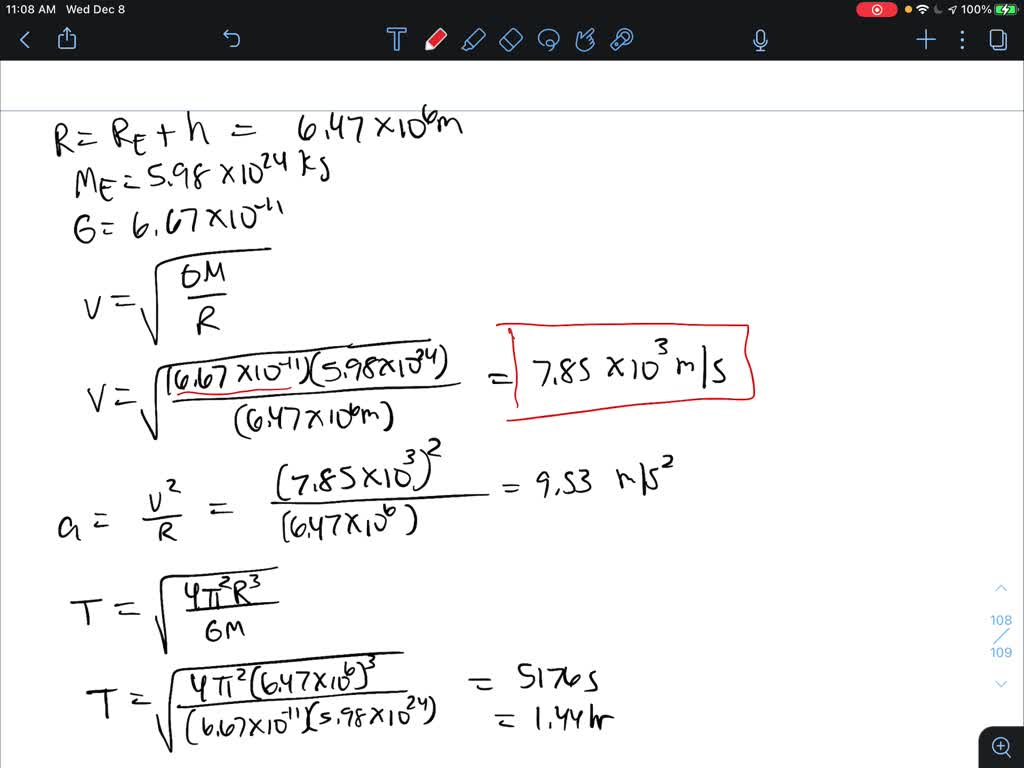 11:08 AM Wed Dec 8 100%
R = R_E + h = 6.47 × 10⁶ m
M_E = 5.98 × 10²⁴ kg
G = 6.67 × 10⁻¹¹
v = √(GM / R)
v = √((6.67 × 10⁻¹¹)(5.98 × 10²⁴) / (6.47 × 10⁶ m)) = 7.85 × 10³ m/s
a = v² / R = (7.85 × 10³)² / (6.47 × 10⁶) = 9.53 m/s²
T = √(4π²R³ / GM)
T = √(4π²(6.47 × 10⁶)³ / (6.67 × 10⁻¹¹)(5.98 × 10²⁴)) = 5176 s
= 1.44 hr
108
/
109